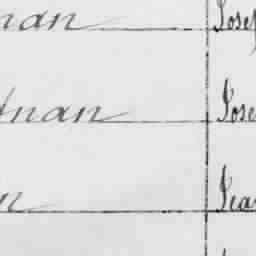 nan Josep
tnan Jose
n Jean